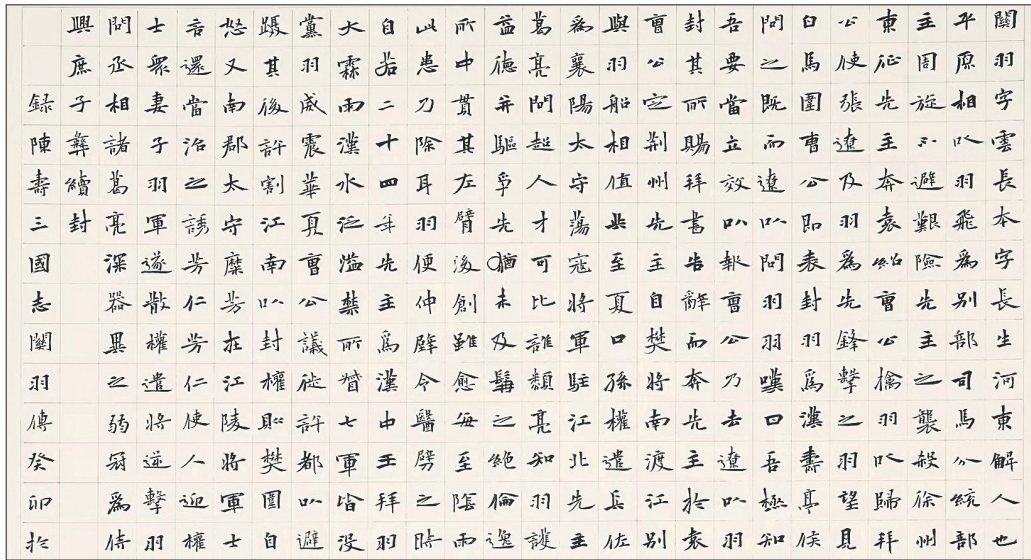 關羽字雲長本字長生河東解人也
平原相以羽飛爲別部司馬分統部
主周旋不避艱險先主之襲殺徐州
東征先主奔袁紹曹公擒羽以歸拜
公使張遼及羽爲先鋒擊之羽望見
白馬圍曹公即表封羽爲漢壽亭侯
問之既而遼以問羽羽嘆曰吾極知
吾要當立效以報曹公乃去遼以羽
封其所賜拜書告辭而奔先主於袁
曹公定荆州先主自樊將南渡江別
與羽船相值共至夏口孫權遣兵佐
爲襄陽太守蕩寇將軍駐江北先主
葛亮問超人才可比誰類亮知羽護
益德并驅爭先猶未及髯之絕倫逸
所中貫其左臂後創雖愈每至陰雨
此患乃除耳羽便伸臂令醫劈之時
自若二十四年先主爲漢中王拜羽
大霖雨漢水泛溢禁所督七軍皆沒
黨羽威震華夏曹公議徙許都以避
躡其後許割江南以封權則樊圍自
怒又南郡太守糜芳在江陵將軍士
言還當治之誘芳仁芳仁使人迎權
士眾妻子羽軍遂散權遣將逆擊羽
問丞相諸葛亮深器異之弱冠爲侍
興庶子彝續封
録陳壽三國志關羽傳癸卯於